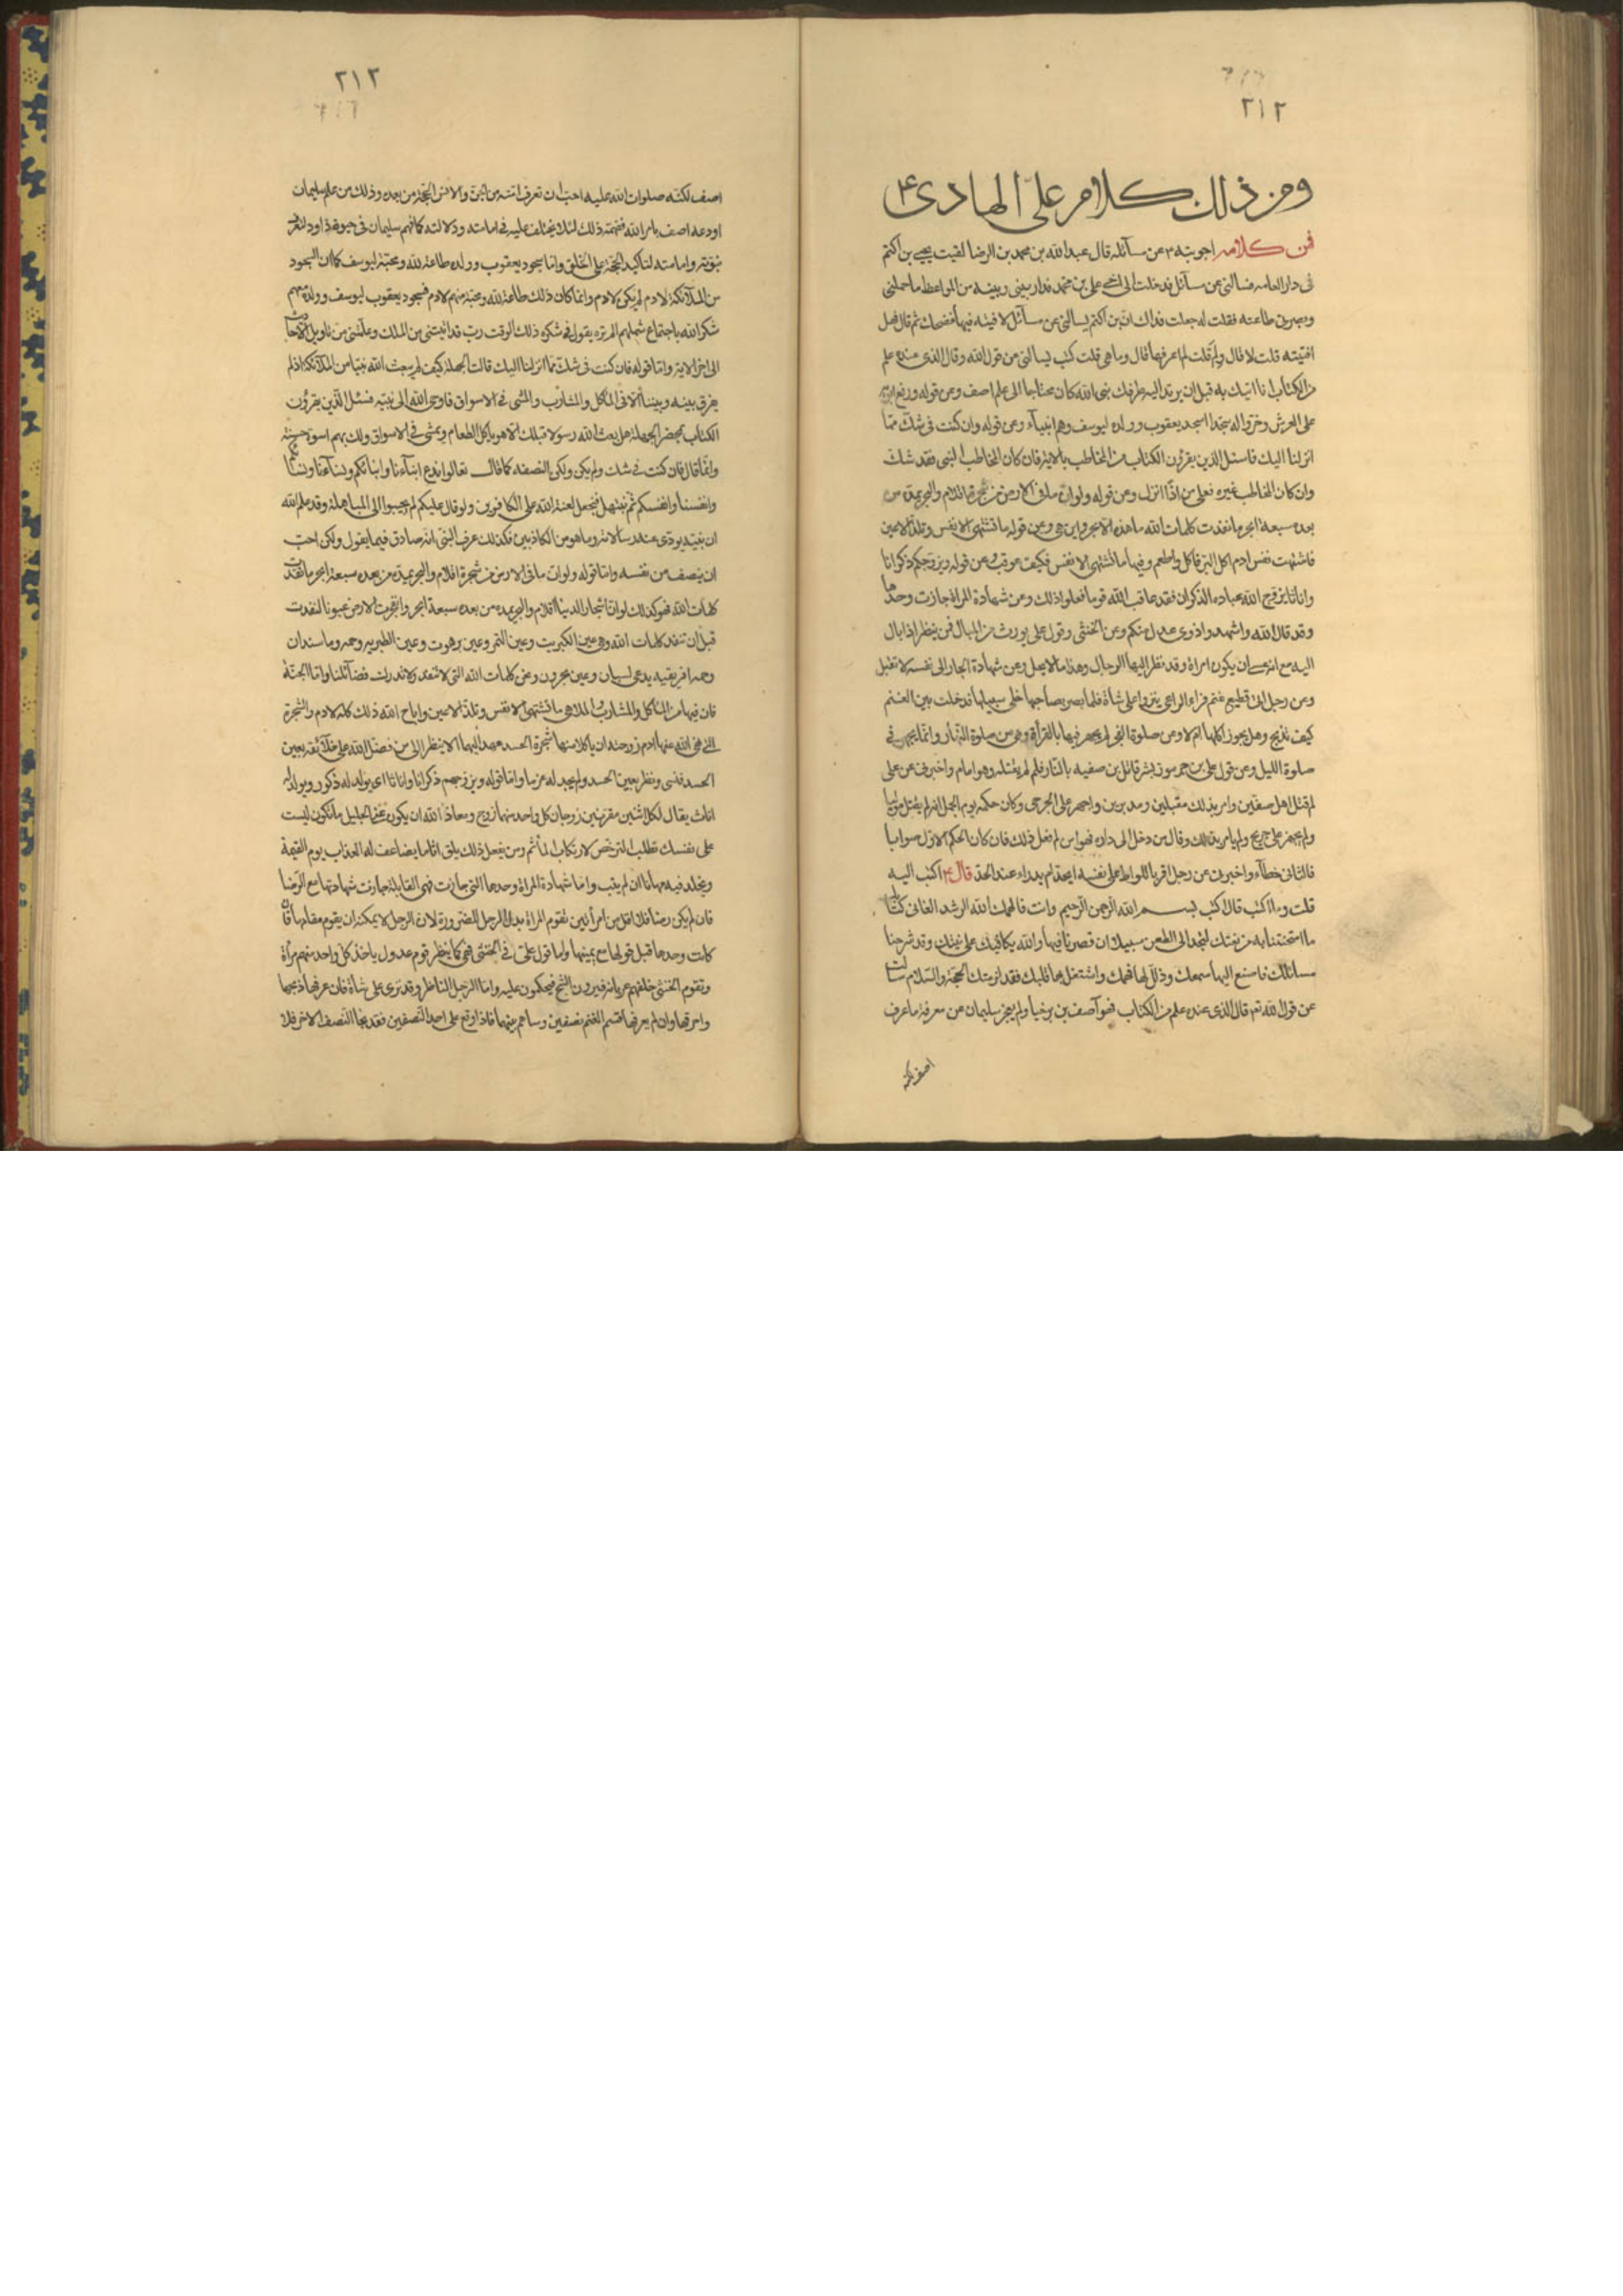 ٢١٢
ومن ذلك كلام علي الهادي ع
فمن كلامه اجوبته عن مسآئله قال عبدالله بن محمد بن الرضا لقيت يحيى بن اكثم
فى دار العامه فسالنى عن مسآئل فدخلت الى اخى على بن محمد فدار بينى وبينه من المواعظ ما حملنى
وبصرنى طاعته فقلت له جعلت فداك ان بن اكثم يسالنى عن مسآئل لافتيه فيها فضحك ثم قال فهل
افتيته قلت لا قال ولم قلت لم اعرفها قال وما هى قلت كتب يسالنى من قول الله وقال الذى عنده علم
من الكتاب انا اتيك به قبل ان يرتد اليه طرفك بنى الله كان محتاجا الى علم اصف وعن قوله ورفع ابويه
على العرش وخروا له سجدا اسجد يعقوب وولده ليوسف وهم انبيآء وعن قوله وان كنت فى شك مما
انزلنا اليك فاسئل الذين يقرؤن الكتاب من المخاطب بالاية فان كان المخاطب النبى فقد شك
وان كان المخاطب غيره فعلى من اذا انزل وعن قوله ولو ان ما فى الارض من شجرة اقلام والبحر يمده من
بعده سبعة ابحر ما نفدت كلمات الله ما هذه الابحر واين هى وعن قوله ما تشتهى الانفس وتلذ الاعين
فاشتهت نفس ادم اكل البر فاكل واطعم وفيها ما تشتهى الانفس فكيف عوقب وعن قوله ويزوجكم ذكرانا
واناثا يزوج الله عباده الذكران فقد عاقب الله قوما فعلوا ذلك وعن شهادة المراة جازت وحدها
وقد قال الله واشهدوا ذوى عدل منكم وعن الخنثى وقول على يورث من المبال فمن ينظر اذا بال
اليه مع انه عسى ان يكون امراة وقد نظر اليها الرجال وهذا ما لا يحل وعن شهادة الجار الى نفسه لا تقبل
وعن رجل اتى قطيع غنم فراى الراعى ينزوا على شاة فلما بصر بصاحبها خلى سبيلها فدخلت بين الغنم
كيف تذبح وهل يجوز اكلها ام لا وعن صلوة الفجر لم يجهر فيها بالقرآءة وهى من صلوة النهار وانما يجهر فى
صلوة الليل وعن قول على بن جرموز بشر قاتل بن صفيه بالنار فلم لم يقتله وهو امام واخبرنى عن على
لم قتل اهل صفين وامر بذلك مقبلين ومدبرين واجهز على الجرحى وكان حكمه يوم الجمل انه لم يقتل موليا
ولم يجهز على جريح ولم يامر بذلك وقال من دخل الى داره فهو امن لم فعل ذلك فان كان الحكم الاول صوابا
فالثانى خطآء واخبرنى عن رجل اقر باللواط على نفسه ايحد ام يدراء عنه الحد قال ع اكتب اليه
قلت وما اكتب قال اكتب بسم الله الرحمن الرحيم وانت فالهمك الله الرشد اتانى كتابك
ما امتحنتنا به من تعنتك لتجد الى الطعن سبيلا ان قصرنا فيها والله يكافيك على نيتك وقد شرحنا
مسائلك فاصغ اليها سمعك وذلل لها فهمك واشتغل بها قلبك فقد لزمتك الحجة والسلام سالت
عن قول الله تع قال الذى عنده علم من الكتاب فهو آصف بن برخيا ولم يعجز سليمان عن معرفة ما عرف
اصف لكنه
٢١٣
اصف لكنه صلوات الله عليه احب ان تعرف امته من الجن والانس انه الحجة من بعده وذلك من علم سليمان
اودعه اصف بامر الله ففهمه ذلك لئلا يختلف عليه فى امامته ودلالته كما فهم سليمان فى حيوة داود لتعرف
نبوته وامامته لتاكيد الحجة على الخلق واما سجود يعقوب وولده طاعة لله ومحبة ليوسف كما ان السجود
من الملآئكة لادم لم يكن لادم وانما كان ذلك طاعة لله ومحبة منهم لادم فسجود يعقوب ليوسف وولده معهم
شكرا لله باجتماع شملهم الم تره يقول فى شكره ذلك الوقت رب قد اتيتنى من الملك وعلمتنى من تاويل الاحاديث
الى اخر الاية واما قوله فان كنت فى شك مما انزلنا اليك قالت الجهلة كيف لم يبعث الله نبيا من الملآئكة اذ لم
يفرق بينه وبيننا الا فى المآكل والمشارب والمشى فى الاسواق فاوحى الله الى نبيه فسئل الذين يقرؤن
الكتاب بمحضر الجهلة هل بعث الله رسولا قبلك الا هو ياكل الطعام ويمشى فى الاسواق ولك بهم اسوة حسنة
وانما قال فان كنت فى شك ولم يكن ولكن النصفه كما قال تعالوا ندع ابنآءنا وابنائكم ونسآءنا ونسآئكم
وانفسنا وانفسكم ثم نبتهل فنجعل لعنة الله على الكافرين ولو قال عليكم لم يجيبوا الى المباهلة وقد علم الله
ان نبيه يودى عنه رسالاته وما هو من الكاذبين فكذلك عرف النبى انه صادق فيما يقول ولكن احب
ان ينصف من نفسه واما قوله ولو ان ما فى الارض من شجرة اقلام والبحر يمده من بعده سبعة ابحر ما نفدت
كلمات الله فهو كذلك لو ان اشجار الدنيا اقلام والبحر يمده من بعده سبعة ابحر وانفجرت الارض عيونا لنفدت
قبل ان تنفد كلمات الله وهى عين الكبريت وعين التمر وعين برهوت وعين الطبريه وحمه وماسندان
وحمه افريقيه يدعى لسيان وعين بحرون ونحن كلمات الله التى لا تنفد ولا تدرك فضآئلنا واما الجنة
فان فيها من المآكل والمشارب والملاهى ما تشتهى الانفس وتلذ الاعين واباح الله ذلك كله لادم والشجرة
التى نهى الله عنها ادم زوجته ان ياكلا منها شجرة الحسد عهد اليهما الا ينظر الى من فضل الله على خلآئقه بعين
الحسد فنسى ونظر بعين الحسد ولم يجد له عزما واما قوله ويزوجهم ذكرانا واناثا اى يولد له ذكور ويولد له
اناث يقال لكل اثنين مقرنين زوجان كل واحد منهما زوج ومعاذ الله ان يكون عنى الجليل ما تكون لبست
على نفسك تطلب الترخص لارتكاب المآثم ومن يفعل ذلك يلق اثاما يضاعف له العذاب يوم القيمة
ويخلد فيه مهانا ان لم يتب واما شهادة المراة وحدها التى جازت فهى القابلة جازت شهادتها مع الرضا
فان لم يكن رضا فلا اقل من امرأتين تقوم المراة بدل الرجل للضرورة لان الرجل لا يمكنه ان يقوم مقامها فان
كانت وحدها قبل قولها مع يمينها واما قول على فى الخنثى فهى كما ينظر قوم عدول ياخذ كل واحد منهم مرآة
وتقوم الخنثى خلفهم عريانة فيرون الشبح فيحكمون عليه واما الرجل الناظر وقد نزى على شاة فان عرفها ذبحها
واحرقها وان لم يعرفها قسم الغنم نصفين وساهم بينهما فاذا وقع على احد النصفين فقد نجا النصف الاخر فلا